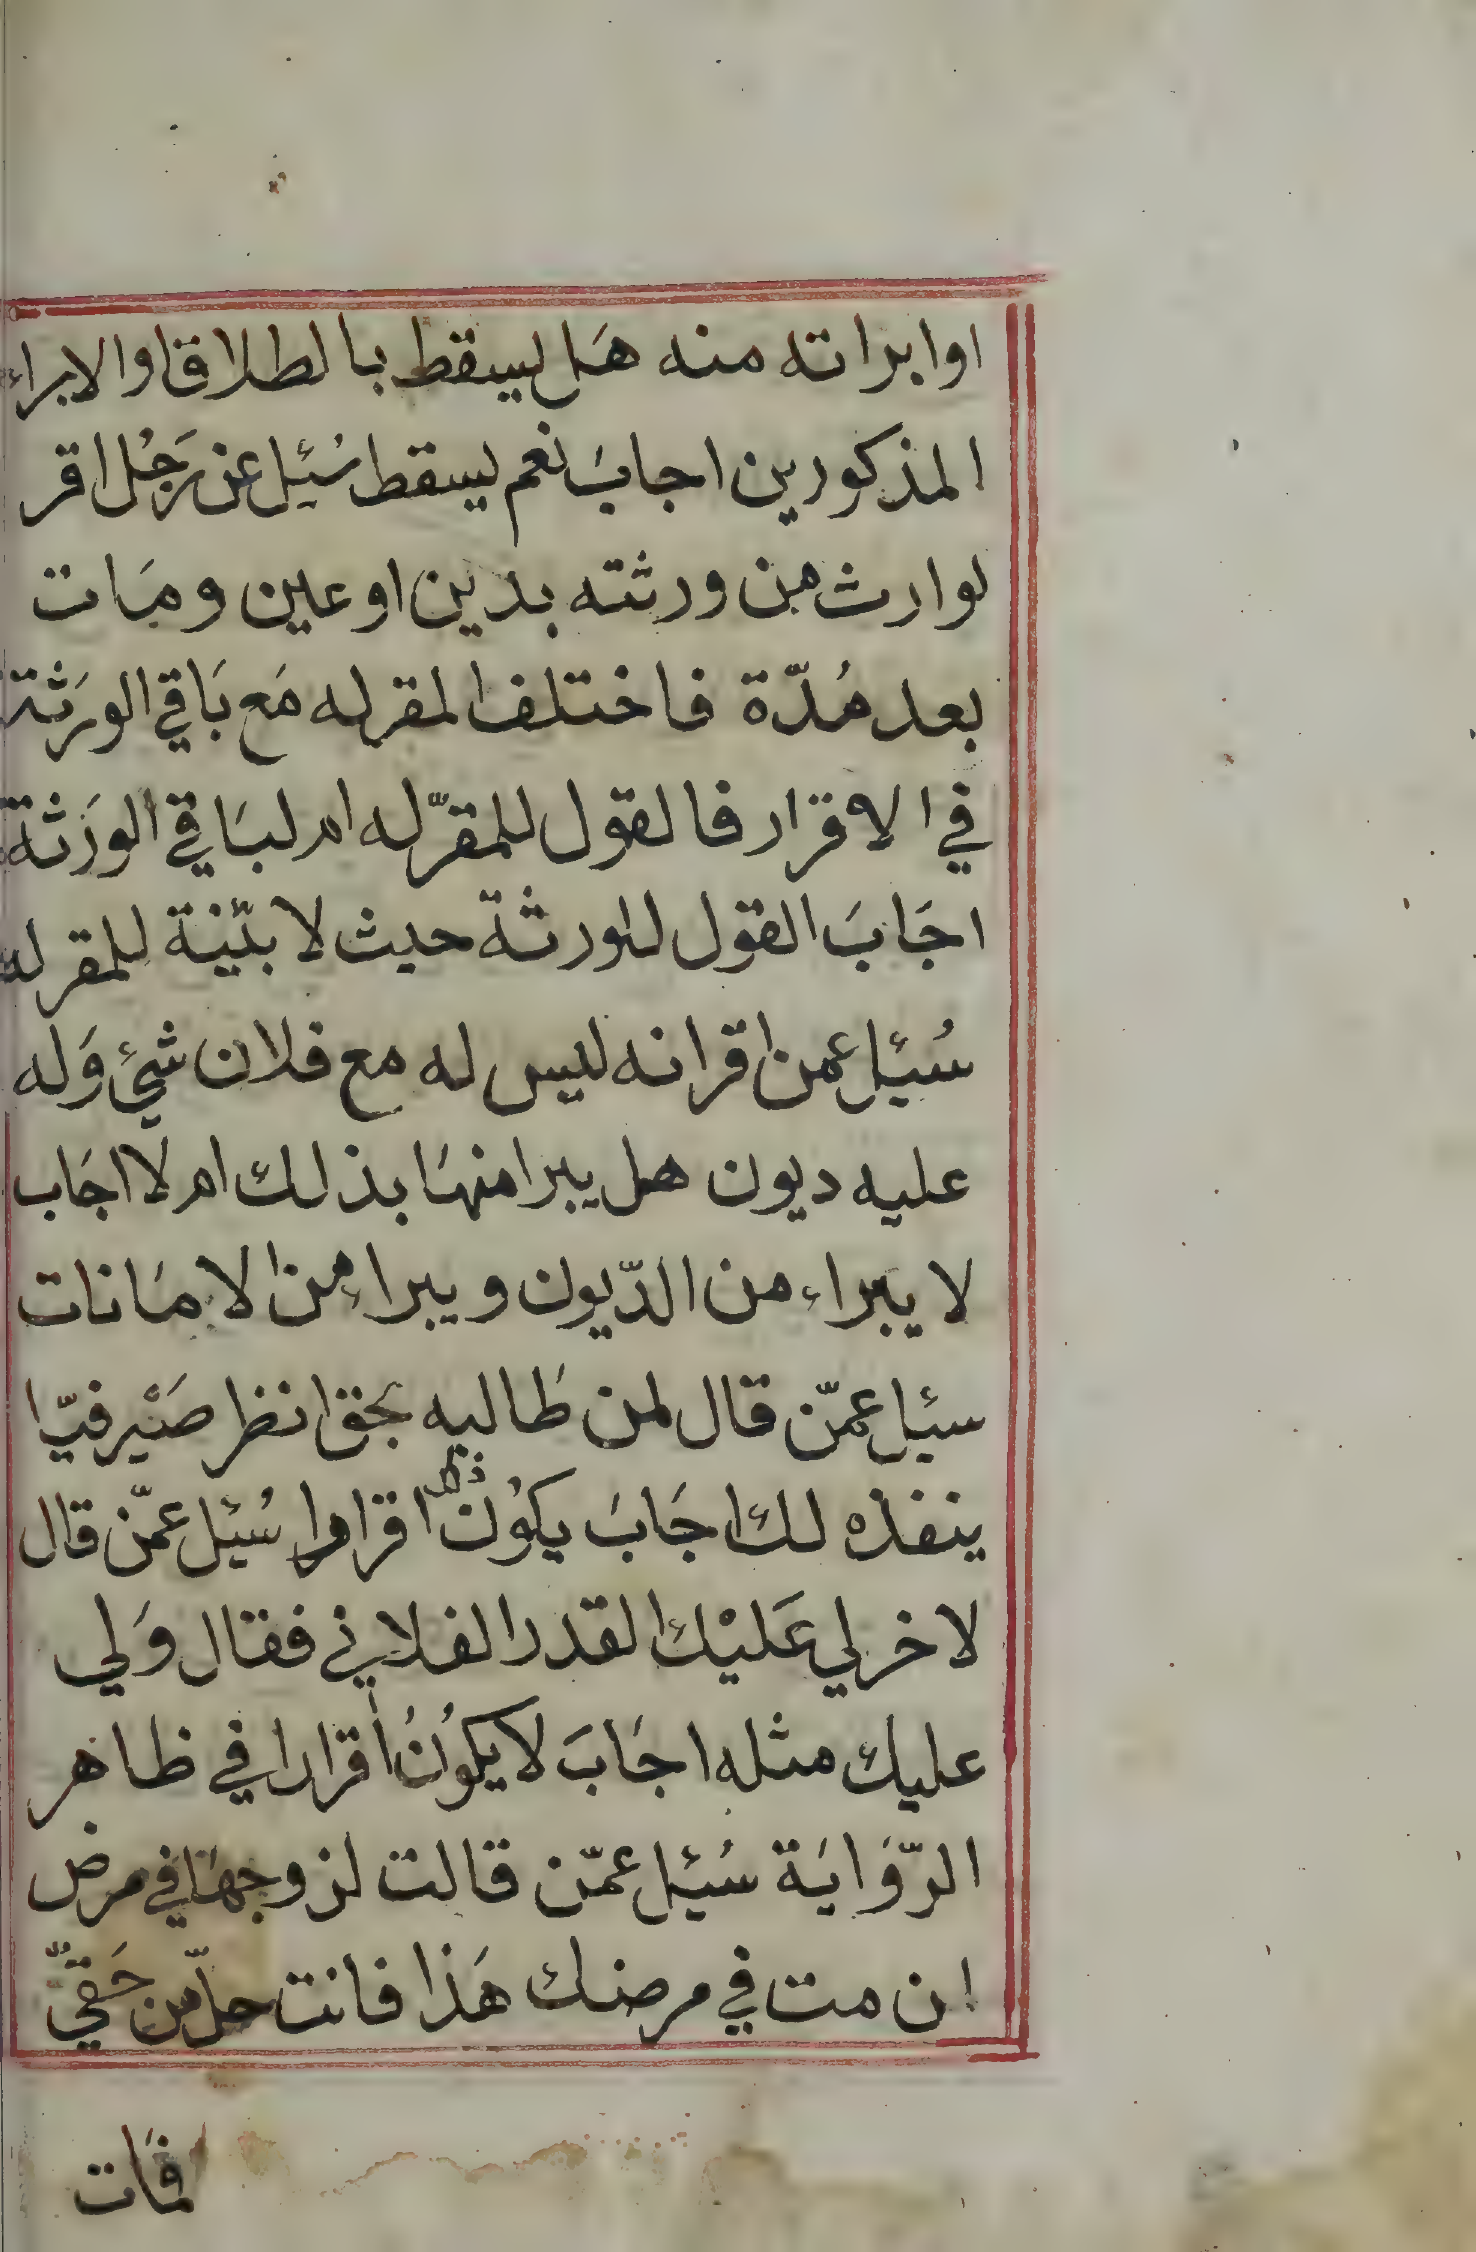 او ابراته منه هَل يسقط بالطلاق او الابراء
المذكورين اجابَ نعم يسقط سُئِل عن رَجُل اقر
لوارث من ورثته بدين او عين ومَات
بعد مُدّة فاختلف المقر له مَع بَاقي الورَثة
في الاقرار فالقول للمقرّ له ام لبَاقي الورَثة
اجَابَ القول للورثة حيث لا بيّنة للمقر له
سُئِل عمن اقر انه ليس له مع فلان شئَ وَله
عليه ديون هل يبرا منهَا بذلك ام لا اجَاب
لا يبراء من الدّيون ويبراء من الامَانات
سئِل عمّن قال لمن طَالبه بحق انظر صَيْرفيّا
ينفذه لك اجَابَ يكوُن ذلك اقرارا سُئِل عمّن قال
لاخر لي عَليْك القدر الفلاني فقال وَلي
عليك مثله اجَابَ لا يكوُنُ أقرارا في ظاهر
الرّوَايَة سُئِل عمّن قالت لزوجهَا في مرض
ان مت في مرضك هَذا فانت حلّ من حَقيّ
فمَات